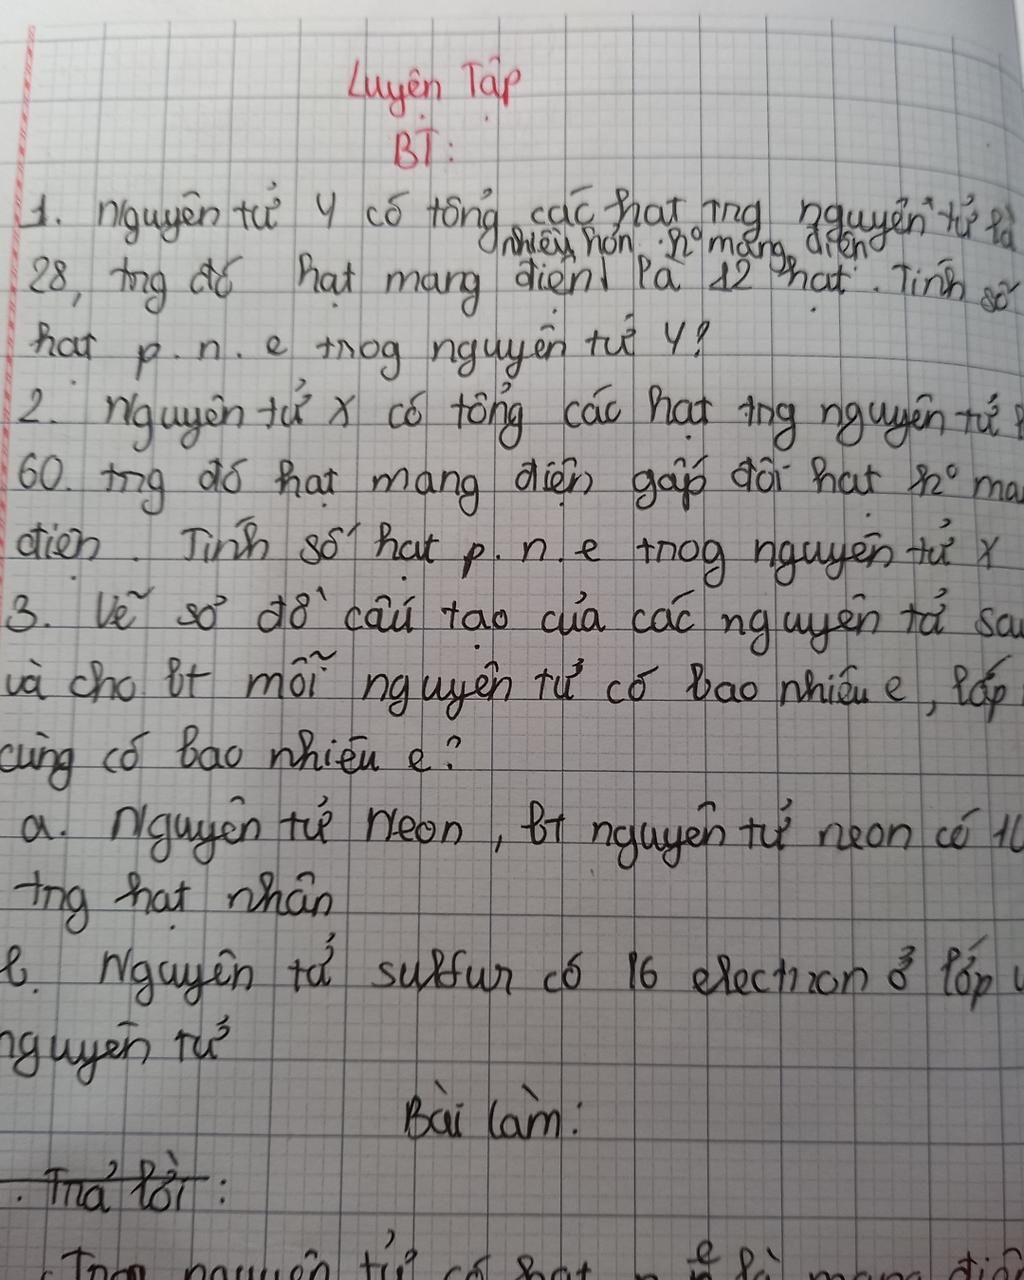 Luyện Tập
BT:
1. Nguyên tử Y có tổng các hạt trg nguyên tử là
nhiều hơn ko mang điện
28, trg đó hạt mang điện là 12 hạt. Tính số
hạt p.n.e trog nguyên tử Y?
2. Nguyên tử X có tổng các hạt trg nguyên tử
60. trg đó hạt mang điện gấp đôi hạt ko ma
điện. Tính số hạt p.n.e trog nguyên tử X
3. Vẽ sơ đồ cấu tạo của các nguyên tử sau
và cho bt mỗi nguyên tử có bao nhiêu e, lớp
cùng có bao nhiêu e?
a. Nguyên tử Neon, bt nguyên tử neon có 10
trg hạt nhân
b. Nguyên tử sulfur có 16 electron ở lớp
nguyên tử
Bài làm:
. Trả lời:
. Trog nguyên tử có hạt mang điện